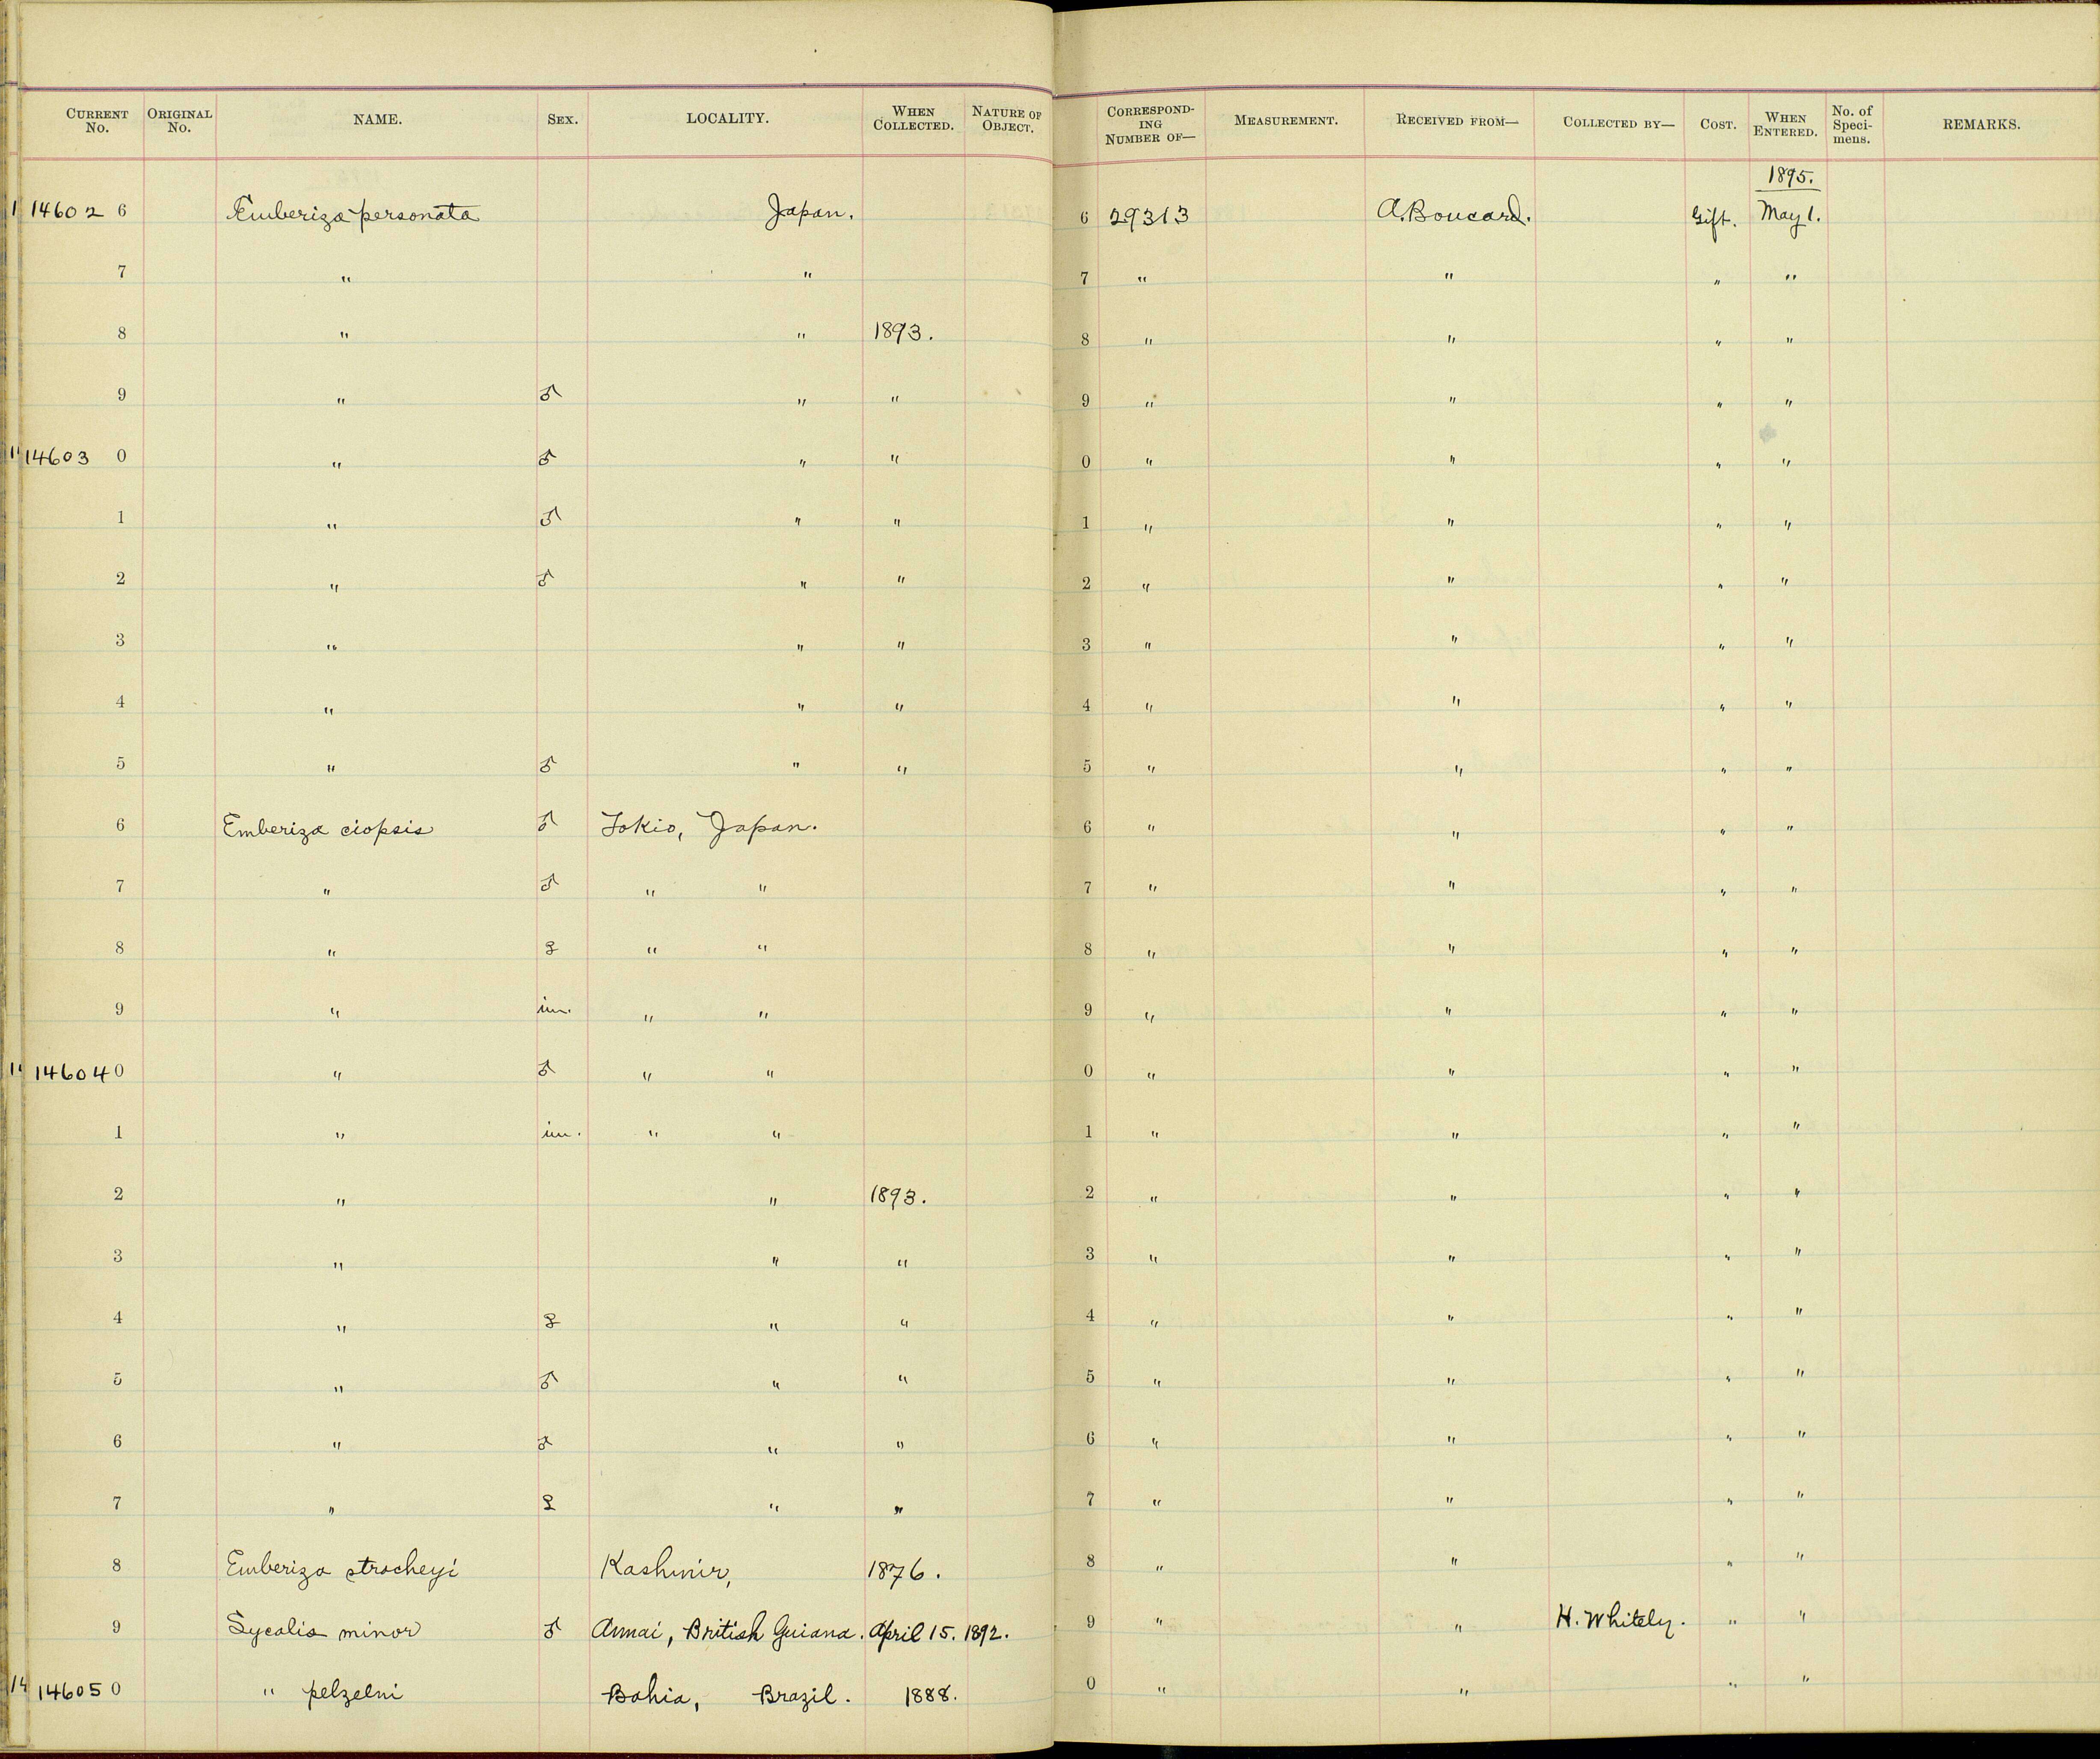 CURRENT No. ORIGINAL No. NAME. SEX. LOCALITY. WHEN COLLECTED. NATURE OF OBJECT. CORRESPONDING NUMBER OF— MEASUREMENT. RECEIVED FROM— COLLECTED BY— COST. WHEN ENTERED. No. of Specimens. REMARKS.
1895.
14602 6 Emberiza personata Japan. 6 29313 A. Boucard. Gift. May 1.
7 " " 7 " " " "
8 " " 1893. 8 " " " "
9 " ♂ " " 9 " " " "
14603 0 " ♂ " " 0 " " " "
1 " ♂ " " 1 " " " "
2 " ♂ " " 2 " " " "
3 " " " 3 " " " "
4 " " " 4 " " " "
5 " ♂ " " 5 " " " "
6 Emberiza ciopsis ♂ Tokio, Japan. 6 " " " "
7 " ♂ " " 7 " " " "
8 " ♀ " " 8 " " " "
9 " im. " " 9 " " " "
14604 0 " ♂ " " 0 " " " "
1 " im. " " 1 " " " "
2 " " 1893. 2 " " " "
3 " " " 3 " " " "
4 " ♀ " " 4 " " " "
5 " ♂ " " 5 " " " "
6 " ♂ " " 6 " " " "
7 " ♀ " " 7 " " " "
8 Emberiza stracheyi Kashmir, 1876. 8 " " " "
9 Sycalis minor ♂ Annai, British Guiana. April 15. 1892. 9 " " H. Whitely. " "
14605 0 " pelzelni Bahia, Brazil. 1888. 0 " " " "